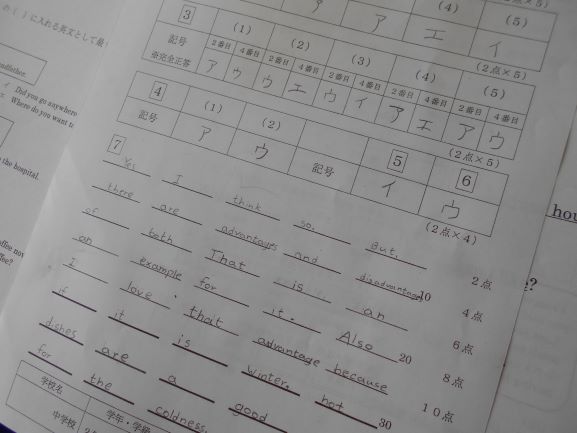 の ( ) に入れる英文として最
ndfather.
イ Did you go anywhere
エ Where do you want to
the hospital.
(4) (5)
ア ア エ イ
(2点×5)
3 (1) (2) (3) (4) (5)
記号 ※完全正答 2番目 4番目 2番目 4番目 2番目 4番目 2番目 4番目 2番目 4番目
ア ウ ウ エ ウ イ ア エ ア ウ
(2点×5)
4 (1) (2) 5 6
記号 ア ウ 記号 イ ウ
(2点×4)
7
Yes I think so. But,
there are advantages and disadvantages 10 2点
of both That is an 4点
an example for it. Also 20 6点
I love that advantage because 8点
if it is winter, hot 30 10点
dishes are a good
for the coldness.
学校名
中学校 学年・学級
hou
e?